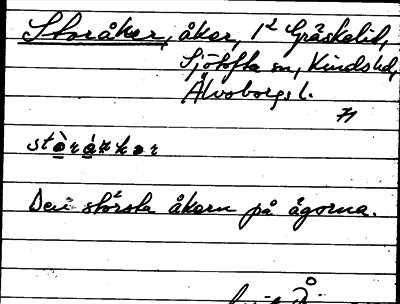 Storåker, åker, 1/2 Gräskelid,
Sjötofta sn, Kinds hd,
Älvsborgs l.
71
stò̱rá̱kkər
Den största åkern på ägorna.